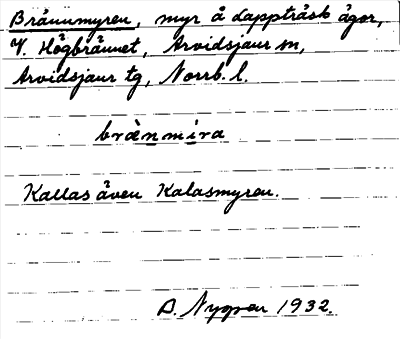 Brännmyren, myr å Lappträsk ägor,
V. Högbrännet, Arvidsjaur sn,
Arvidsjaur tg, Norrb. l.
brænmira
Kallas även Kalasmyren.
D. Nygren 1932.